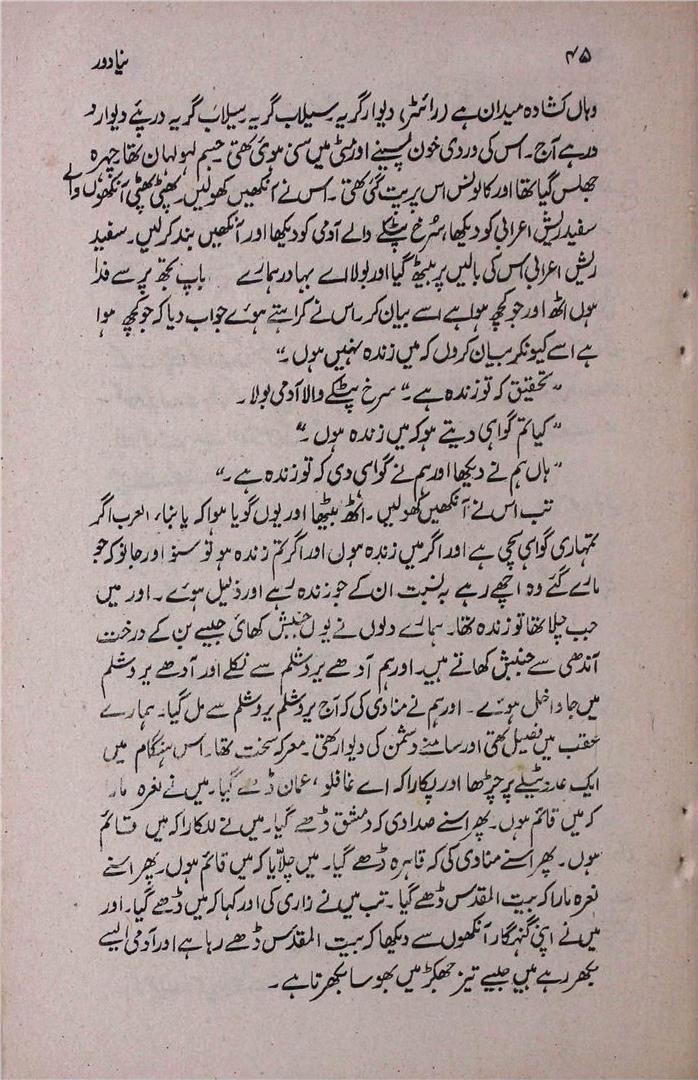 ۴۵
نیا دور
وہاں کشادہ میدان ہے (رائٹر) دیوار گریہ سیلاب گریہ سیلاب گریہ درپئے دیوار و
در ہے آج۔ اس کی وردی خون پسینے اور مٹی میں سنی ہوئی تھی جسم لہولہان تھا۔ چہرہ
جھلس گیا تھا اور کالونس اس پر پت گئی تھی۔ اس نے آنکھیں کھولیں۔ پھٹی پھٹی آنکھوں والے
سفید ریش اعرابی کو دیکھا، سُرخ پٹکے والے آدمی کو دیکھا اور آنکھیں بند کرلیں۔ سفید
ریش اعرابی اس کی بالیں پر بیٹھ گیا اور بولا اے بہادر ہمارے باپ تجھ پر سے فدا
ہوں اٹھ اور جو کچھ ہوا ہے اسے بیان کر۔ اس نے کراہتے ہوئے جواب دیا کہ جو کچھ ہوا
ہے اسے کیونکر بیان کروں کہ میں زندہ نہیں ہوں۔"
"تحقیق کہ تو زندہ ہے۔" سرخ پٹکے والا آدمی بولا۔
"کیا تم گواہی دیتے ہو کہ میں زندہ ہوں۔"
"ہاں ہم نے دیکھا اور ہم نے گواہی دی کہ تو زندہ ہے۔"
تب اس نے آنکھیں کھولیں۔ اٹھ بیٹھا اور یوں گویا ہوا کہ یا بناء العرب اگر
تمہاری گواہی سچی ہے اور اگر میں زندہ ہوں اور اگر تم زندہ ہو تو سنو اور جانو کہ جو
مارے گئے وہ اچھے رہے بہ نسبت ان کے جو زندہ رہے اور ذلیل ہوئے۔ اور میں
جب چلا تھا تو زندہ تھا۔ ہمارے دلوں نے یوں جنبش کھائی جیسے بن کے درخت
آندھی سے جنبش کھاتے ہیں۔ اور ہم آدھے یروشلم سے نکلے اور آدھے یروشلم
میں جا داخل ہوئے۔ اور ہم نے منادی کی کہ آج یروشلم یروشلم سے مل گیا۔ ہمارے
عقب میں فصیل تھی اور سامنے دشمن کی دیوار تھی۔ معرکہ سخت تھا۔ اس ہنگام میں
ایک عدد ٹیلے پر چڑھا اور پکارا کہ اے غافلو، عمان ڈھے گیا۔ میں نے نعرہ مارا
کہ میں قائم ہوں۔ پھر اسنے صدا دی کہ دمشق ڈھے گیا۔ میں نے للکارا کہ میں قائم
ہوں۔ پھر اسنے منادی کی کہ قاہرہ ڈھے گیا۔ میں چلّایا کہ میں قائم ہوں۔ پھر اسنے
نعرہ مارا کہ بیت المقدس ڈھے گیا۔ تب میں نے زاری کی اور کہا کہ میں ڈھے گیا۔ اور
میں نے اپنی گنہگار آنکھوں سے دیکھا کہ بیت المقدس ڈھے رہا ہے اور آدمی ایسے
بکھر رہے ہیں جیسے تیز جھکڑ میں بھوسا بکھرتا ہے۔